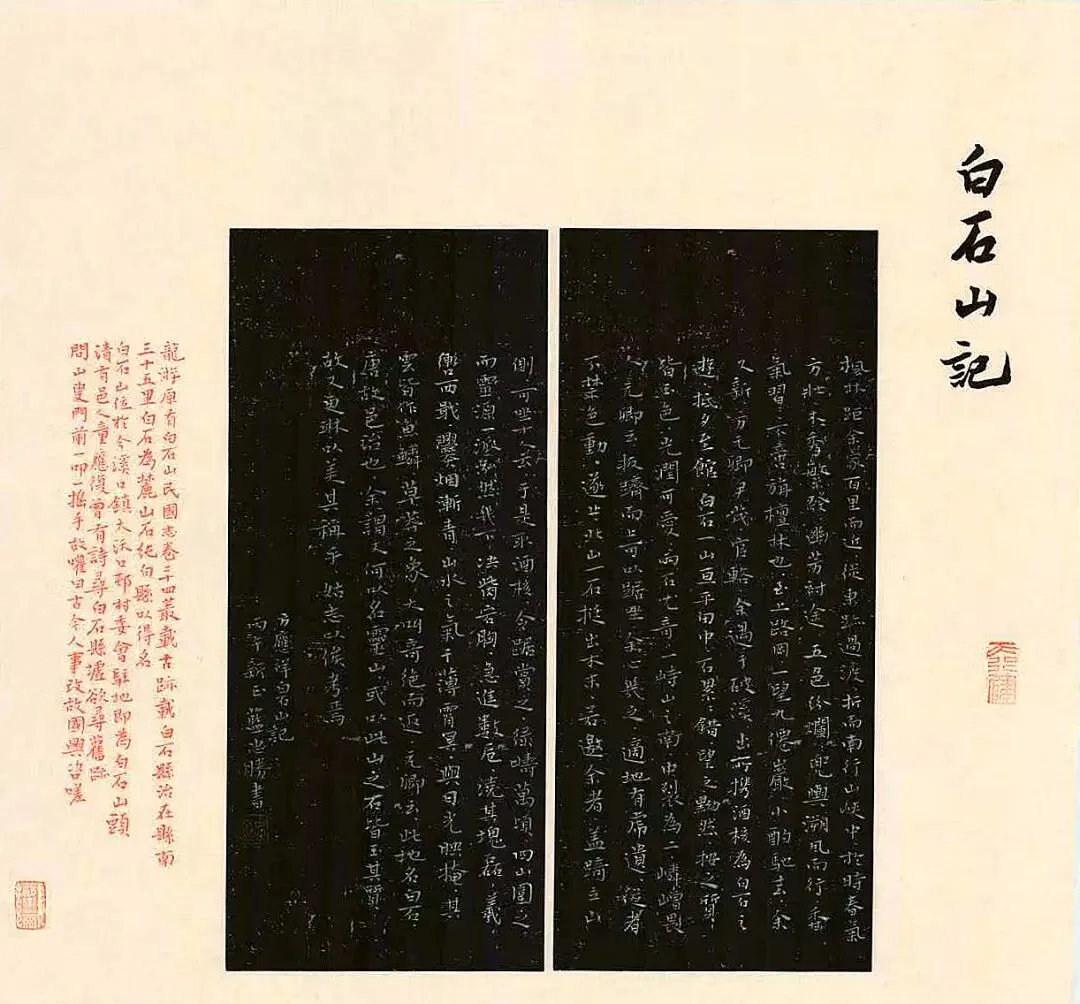 白石山記
楓林距余家百里而近從東跡過渡折而南行山峽中於時春氣
方壯木香繁發幽芳對途五色紛爛兜輿溯風而行香
氣習習六喜旃檀林也至上路岡一望九僊巖小酌馳去余
又新方元卿尹茂官輅余過于破溪出所携酒核為白石之
遊抵夕至館白石一山亘平田中石累錯望之黝然捫之質
皆玉色光潤可愛両石尤奇一峙山之南中裂為二嶙嶒畏
人元卿云扳躋而上可以踞坐余心畏之適地有席遺徑者
不禁色動遂坐北山一石挺出木末若邀余者蓋踦立山
側可坐十人云于是取酒核令踞賞之綠疇萬頃四山圍之
而靈源一派劃然北下決眥宕胸急進數卮澆其塊磊羲
轡西戢爨烟漸青山水之氣干薄霄冥與日光映掩其
雲皆作魚鱗草莽之象大叫奇絕而返元卿云此地名白石
唐故邑治也余謂又何以名靈山或以此山之石皆玉其質
故又更琳以美其稱乎姑志以俟考焉
方應祥白石山記
丙午新正 藍尚勝書
龍游原有白石山民國志卷三四叢載古跡載白石縣治在縣南
三十五里白石為麓山石純白縣以得名
白石山位於今溪口鎮大沃口邨村委會駐地即為白石山頭
清有邑人童應復曾有詩尋白石縣墟欲尋舊跡
問山叟門前一叩一搖手故曜曰古今人事改故國興咨嗟